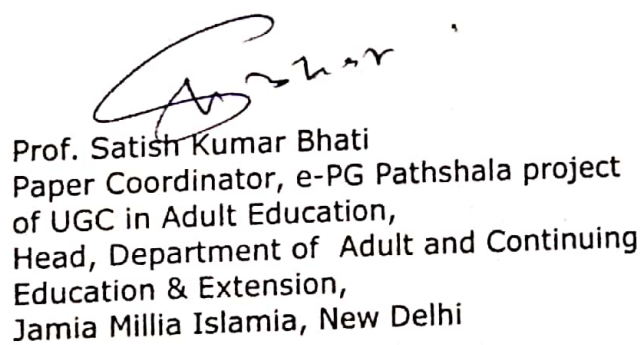 Prof. Satish Kumar Bhati
Paper Coordinator, e-PG Pathshala project
of UGC in Adult Education,
Head, Department of Adult and Continuing
Education & Extension,
Jamia Millia Islamia, New Delhi